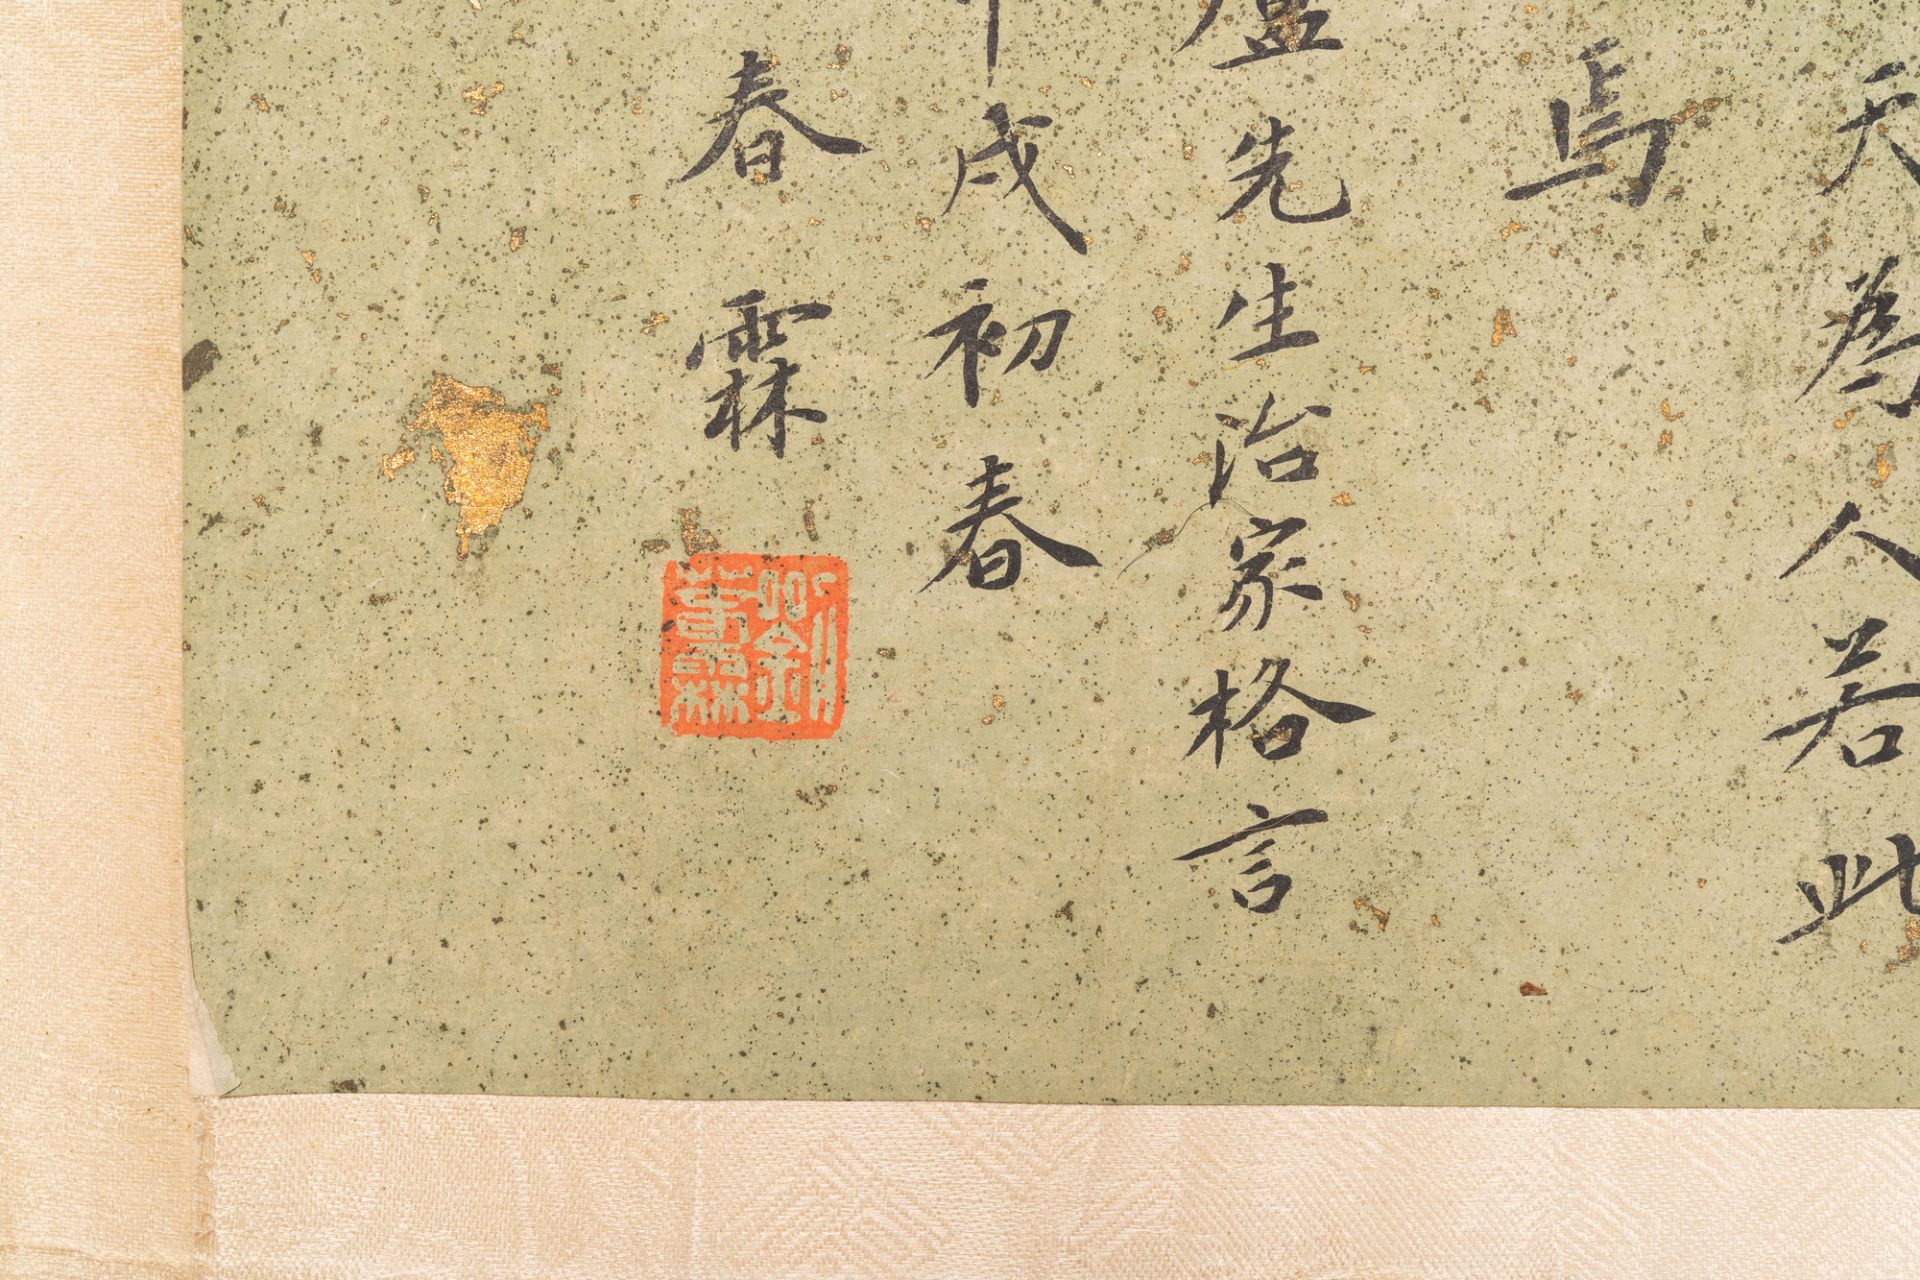 天為人若此
焉
廬先生治家格言
戌初春
春霖
劉春霖